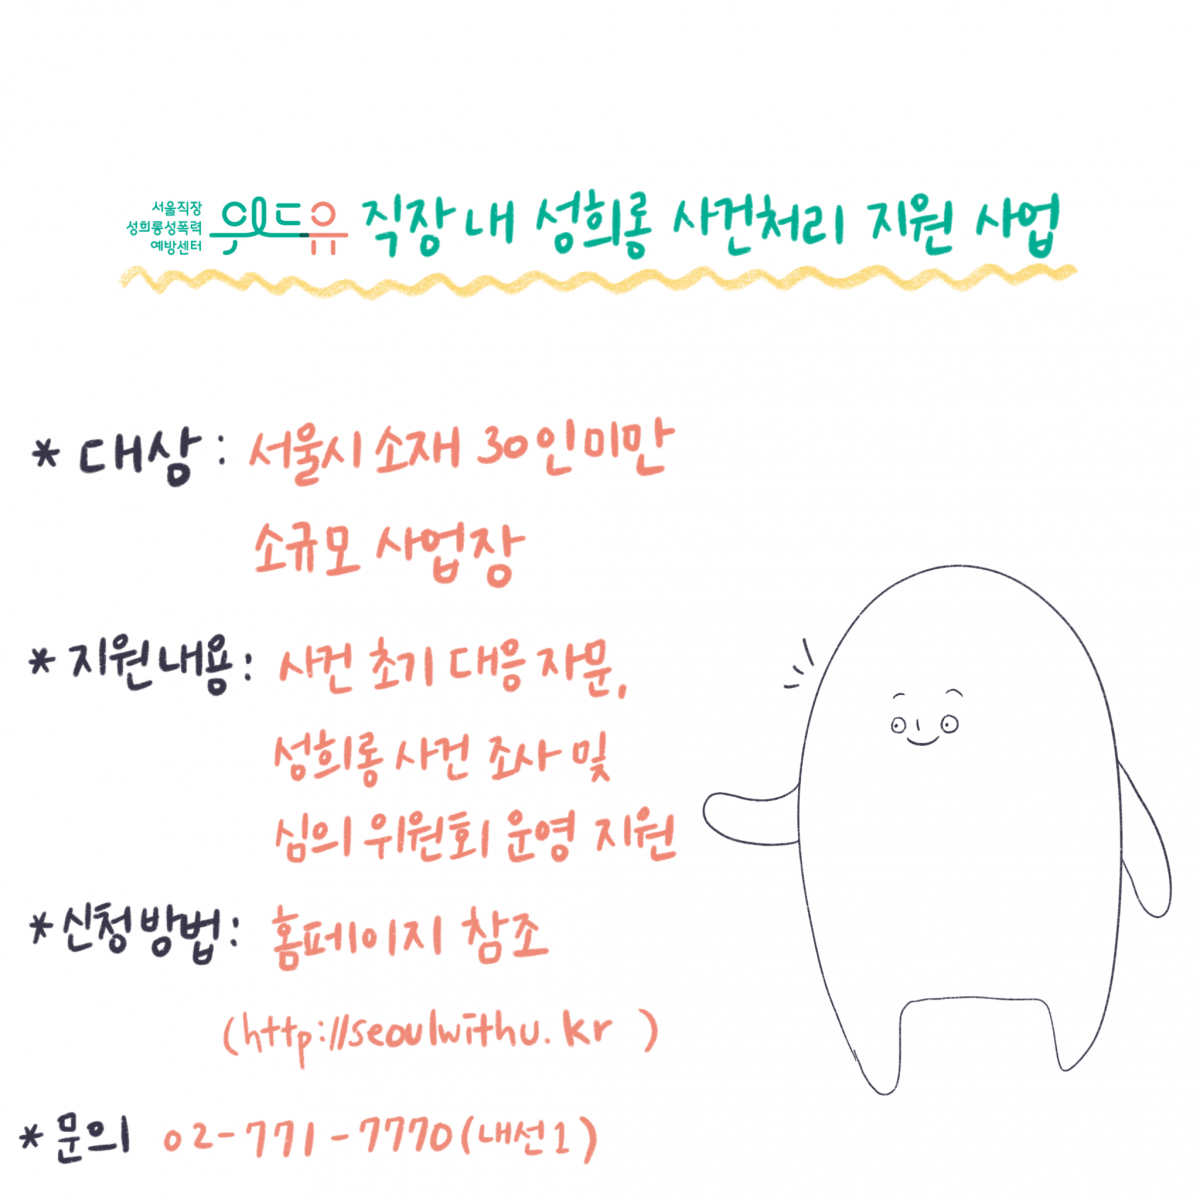 서울직장
성희롱성폭력
예방센터
위드유 직장 내 성희롱 사건처리 지원 사업
* 대상 : 서울시 소재 30인 미만
소규모 사업장
* 지원내용 : 사건 초기 대응 자문,
성희롱 사건 조사 및
심의 위원회 운영 지원
* 신청방법 : 홈페이지 참조
(http://seoulwithu.kr )
* 문의 02-771-7770 (내선 1)